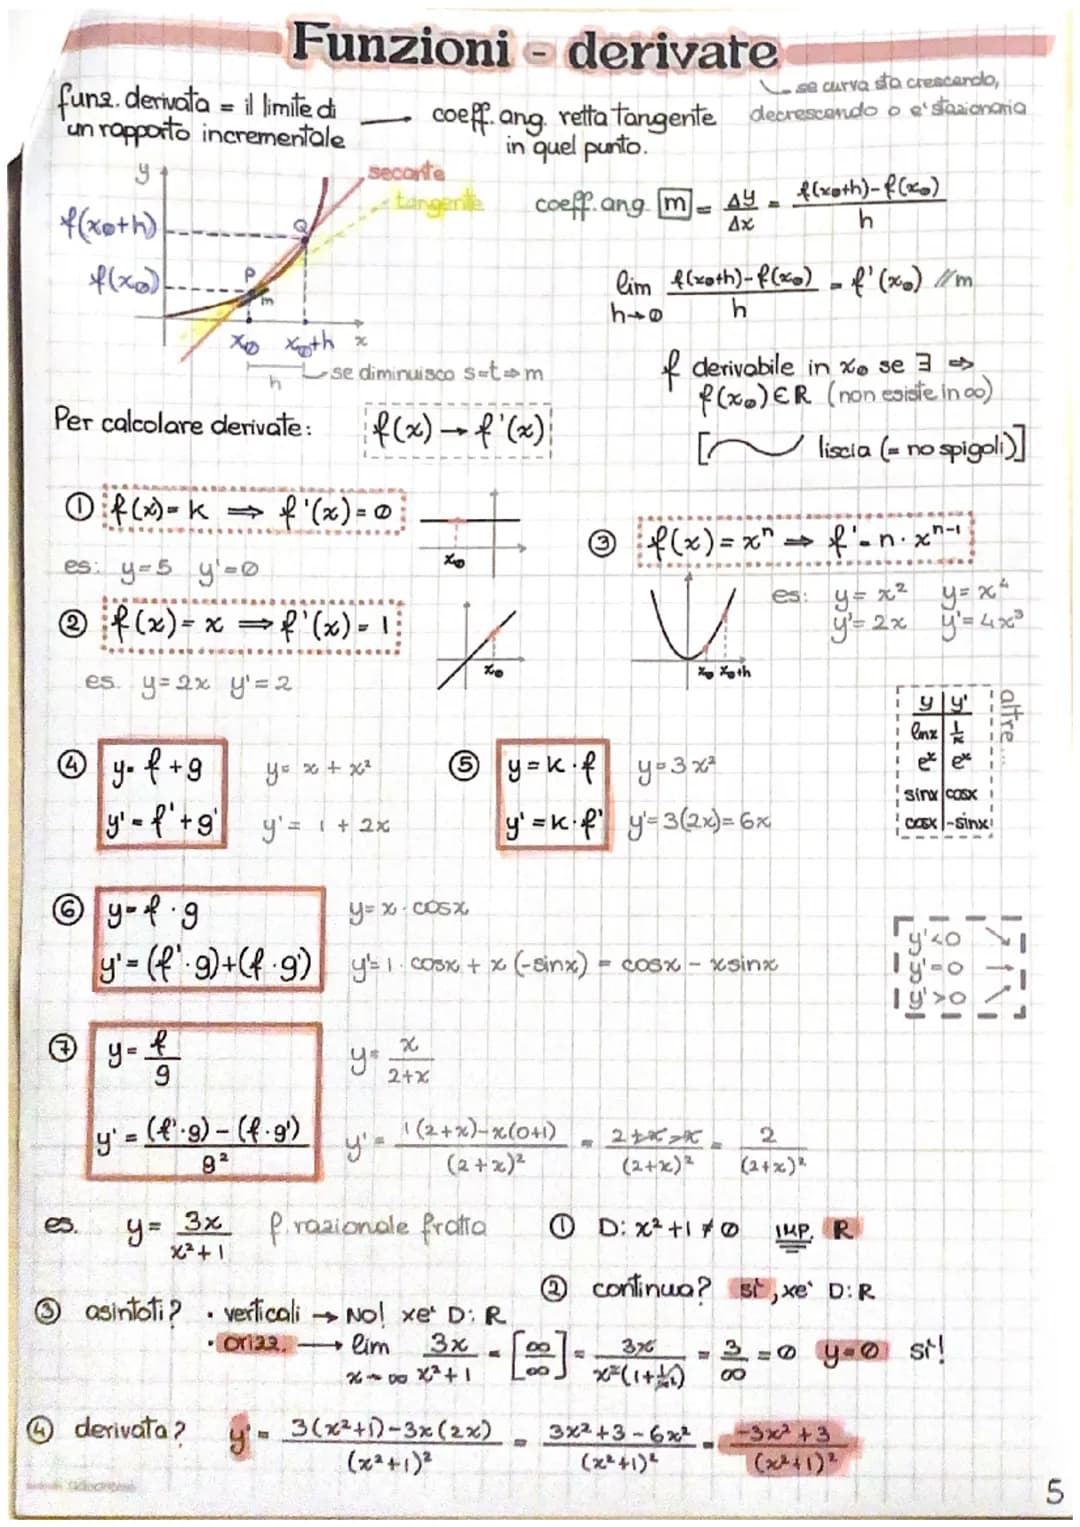 Funzioni - derivate
funz. derivata = il limite di un rapporto incrementale
→ coeff. ang. retta tangente in quel punto.
se curva sta crescendo, decrescendo o e' stazionaria
y
secante
tangente
f(x0+h)
f(x0)
P
Q
m
x0 x0+h x
h
se diminuisco s=t ⇒ m
coeff. ang. m = Δy/Δx = (f(x0+h)-f(x0))/h
lim h→0 (f(x0+h)-f(x0))/h = f'(x0) // m
f derivabile in x0 se ∃ ⇒
f(x0) ∈ R (non esiste in ∞)
[ liscia (= no spigoli)]
Per calcolare derivate: f(x) → f'(x)
① f(x) = k ⇒ f'(x) = 0
es: y=5 y'=0
x0
② f(x) = x ⇒ f'(x) = 1
es. y=2x y'=2
x0
③ f(x) = xⁿ ⇒ f' = n · xⁿ⁻¹
es: y= x² y= x⁴
y'= 2x y'= 4x³
x0 x0+h
altre...
y | y'
lnx | 1/x
eˣ | eˣ
sinx | cosx
cosx | -sinx
④ y= f + g y= x + x²
y' = f' + g' y' = 1 + 2x
⑤ y = k · f y = 3x²
y' = k · f' y' = 3(2x) = 6x
⑥ y = f · g y= x · cosx
y' = (f' · g) + (f · g') y'= 1 · cosx + x (-sinx) = cosx - xsinx
y'<0 ↘
y'=0 →
y'>0 ↗
⑦ y = f/g y = x/(2+x)
y' = ((f'·g) - (f·g'))/g² y' = (1(2+x)-x(0+1))/(2+x)² = (2+x-x)/(2+x)² = 2/(2+x)²
es. y = 3x/(x²+1) f. razionale fratta
① D: x²+1 ≠ 0 IMP. R
② continua? sì, xe' D: R
③ asintoti? • verticali → No! xe' D: R
• orizz. → lim x→∞ 3x/(x²+1) = [∞/∞] = 3x/(x²(1+1/x²)) = 3/∞ = 0 y=0 sì!
④ derivata? y' = (3(x²+1)-3x(2x))/(x²+1)² = (3x²+3-6x²)/(x²+1)² = (-3x²+3)/(x²+1)²
5